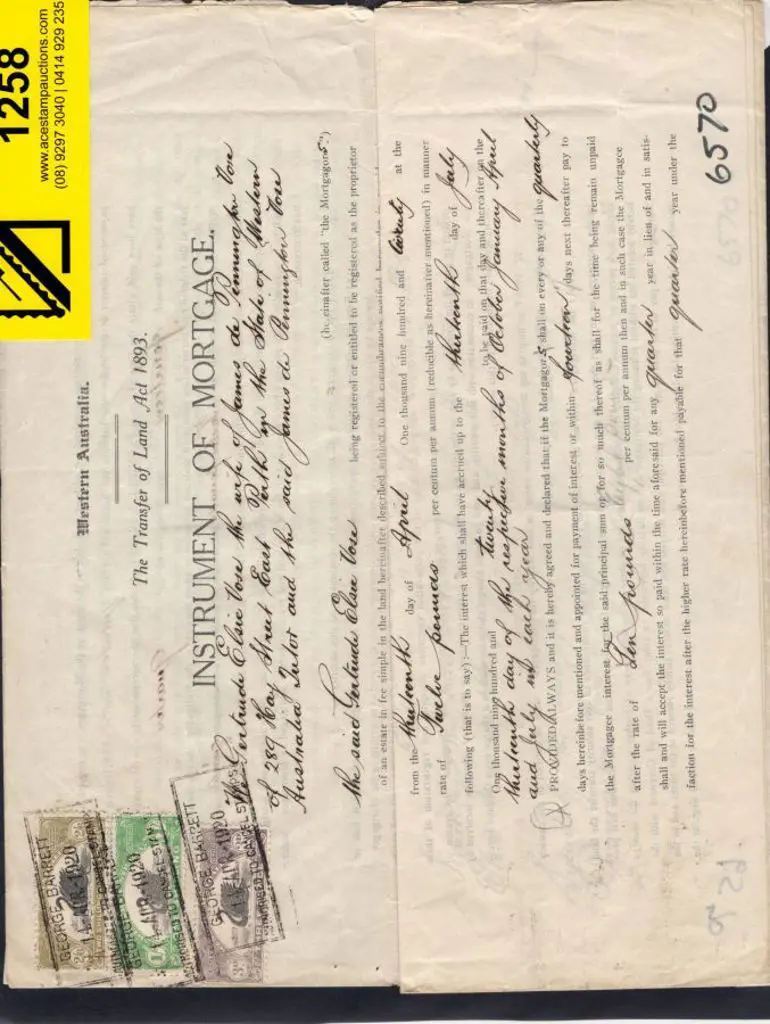 1258
www.acestampauctions.com
(08) 9297 3040 | 0414 929 235
Western Australia.
The Transfer of Land Act 1893.
INSTRUMENT OF MORTGAGE.
We Gertrude Elsie Vose the wife of James de Pennington Vose
of 289 Hay Street East Perth in the State of Western
Australia Tutor and the said James de Pennington Vose
(hereinafter called "the Mortgagors")
the said Gertrude Elsie Vose being registered or entitled to be registered as the proprietor
of an estate in fee simple in the land hereinafter described subject to the encumbrances notified
from the thirteenth day of April One thousand nine hundred and twenty at the
rate of Twelve pounds per centum per annum (reducible as hereinafter mentioned) in manner
following (that is to say):—The interest which shall have accrued up to the thirteenth day of July
One thousand nine hundred and twenty to be paid on that day and thereafter on the
thirteenth day of the respective months of October January April
and July in each year
PROVIDED ALWAYS and it is hereby agreed and declared that if the Mortgagors shall on every or any of the quarterly
days hereinbefore mentioned and appointed for payment of interest or within fourteen days next thereafter pay to
the Mortgagee interest for the said principal sum or for so much thereof as shall for the time being remain unpaid
after the rate of Ten pounds per centum per annum then and in such case the Mortgagee
shall and will accept the interest so paid within the time aforesaid for any quarter year in lieu of and in satis-
faction for the interest after the higher rate hereinbefore mentioned payable for that quarter year under the
6570
GEORGE BARRETT
APR 1920
GEORGE BARRETT
APR 1920
AUTHORISED TO CANCEL STAMPS
GEORGE BARRETT
APR 1920
AUTHORISED TO CANCEL STAMPS